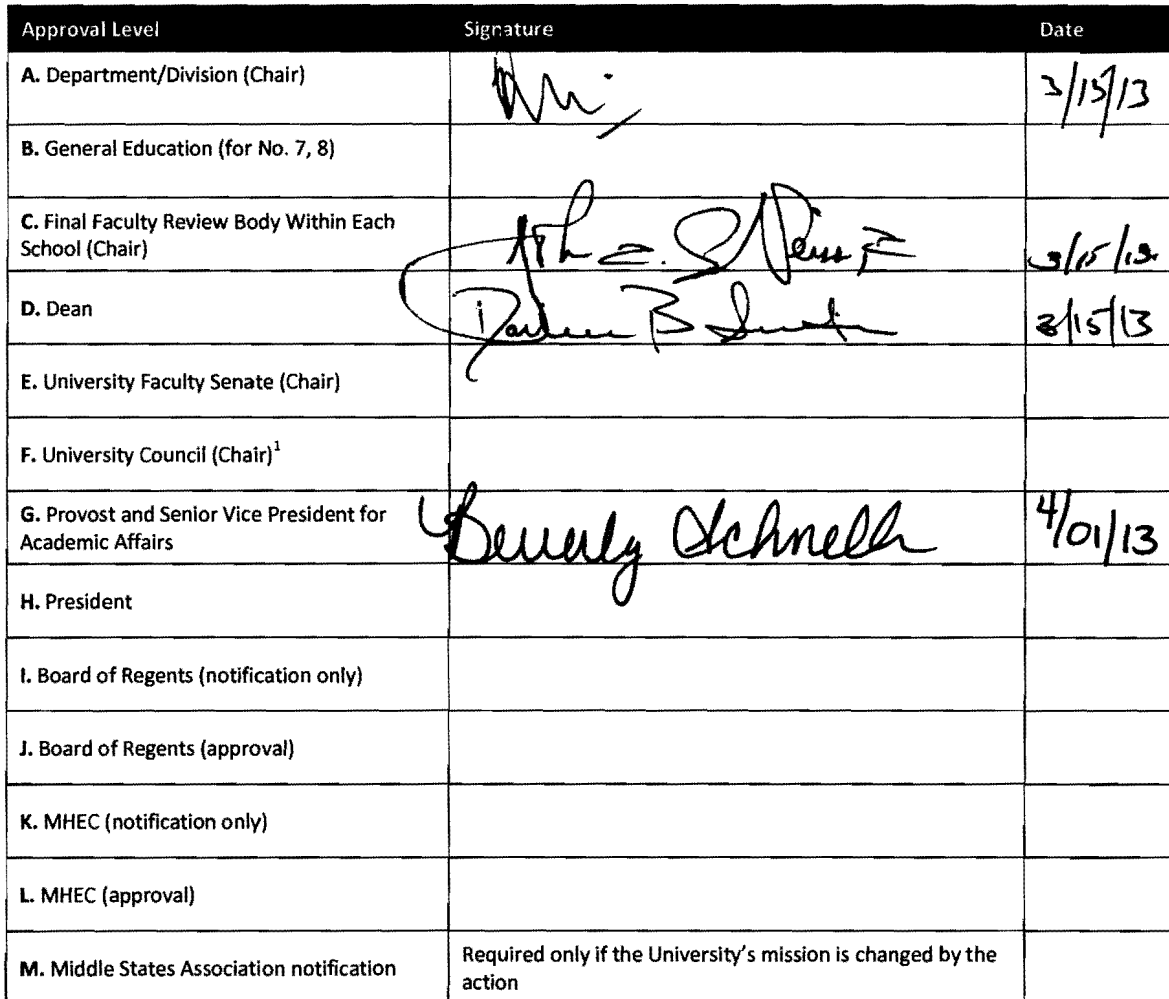 Approval Level Signature Date
A. Department/Division (Chair) 3/15/13
B. General Education (for No. 7, 8)
C. Final Faculty Review Body Within Each
School (Chair) 3/15/13
D. Dean 3/15/13
E. University Faculty Senate (Chair)
F. University Council (Chair)¹
G. Provost and Senior Vice President for Beverly Schnell 4/01/13
Academic Affairs
H. President
I. Board of Regents (notification only)
J. Board of Regents (approval)
K. MHEC (notification only)
L. MHEC (approval)
M. Middle States Association notification Required only if the University's mission is changed by the
action